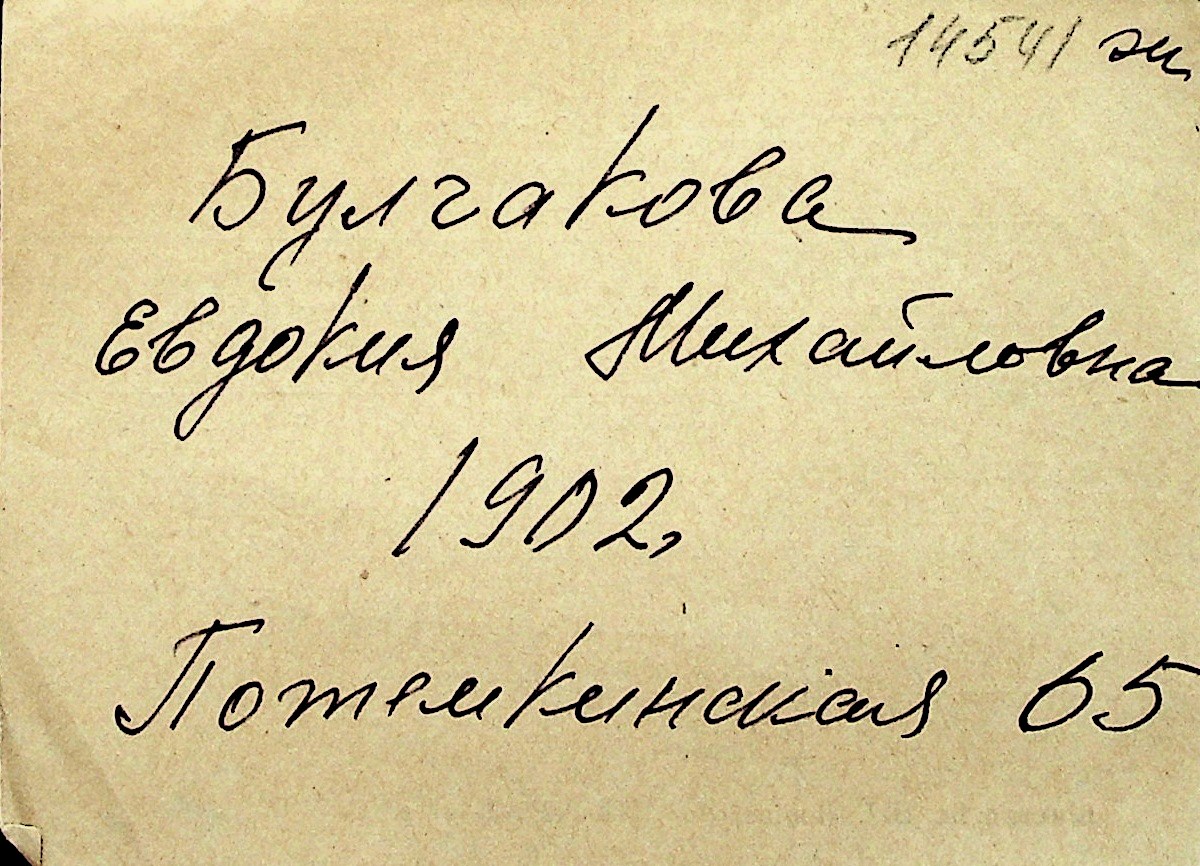 14541 эи
Булгакова
Евдокия Михайловна
1902,
Потемкинская 65